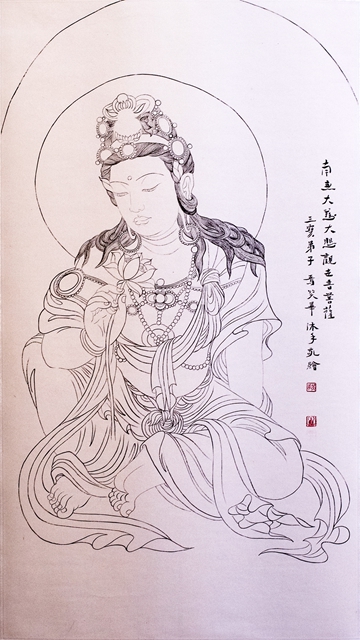 南無大慈大悲觀世音菩薩
三寶弟子 沐手敬繪